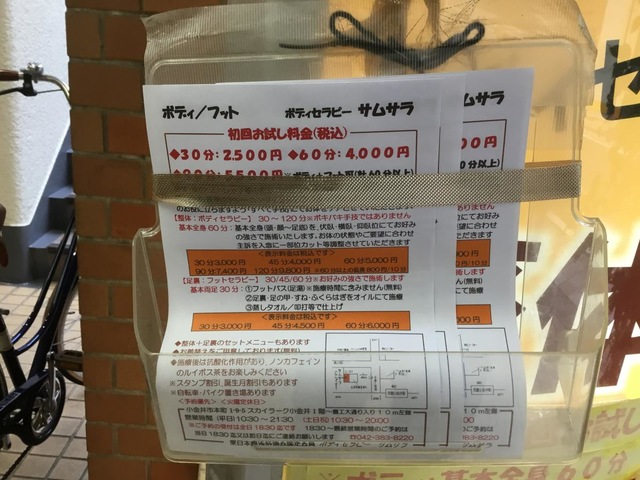 ボディ/フット ボディセラピー サムサラ
初回お試し料金(税込)
◆30分:2,500円 ◆60分:4,000円
【整体:ボディセラピー】 30~120分※ボキバキ手技ではありません
基本全身60分:基本全身(頭・顔~足底)を、伏臥・横臥・仰臥位にてお好み
の強さで施術いたします。お体の状態やご要望に合わせ
主訴を入念に一部位カット等調整させていただきます
<表示料金は税込です>
30分3,000円 45分4,000円 60分5,000円
90分7,400円 120分9,800円 ※60分以上の延長800円/10分
【足裏:フットセラピー】 30/45/60分※お好みの強さで施術します
基本両足30分:①フットバス(足湯)※施療時間に含みません(無料)
②足裏・足の甲・すね・ふくらはぎをオイルにて施療
③蒸しタオル/叩打等で仕上げ
<表示料金は税込です>
30分3,000円 45分4,500円 60分6,000円
◆整体+足裏のセットメニューもあります
◆お着替えをご用意しております(無料)
◆施療後は抗酸化作用があり、ノンカフェイン
のルイボス茶をお楽しみください
※スタンプ割引、誕生月割引もあります
※自転車・バイク置き場あります
<予約優先> <火曜定休日>
小金井市本町1-9-5スカイラーク小金井1階
営業時間(平日)10:30~21:30 (土日祝)10:30~20:00
当日18:30迄又は前日迄にご連絡お願いします ☎042-383-8220
サムサラ
※基本全身60分